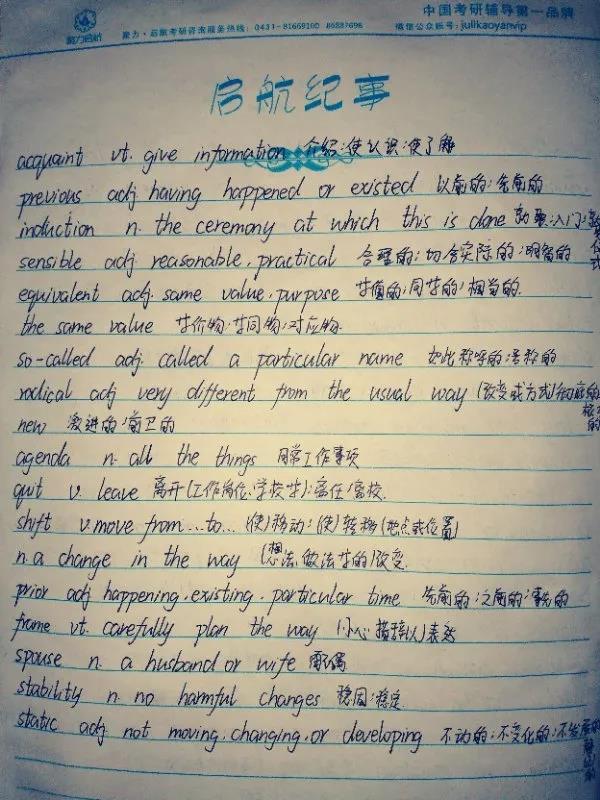 中国考研辅导第一品牌
聚力·启航考研咨询服务热线: 0431-81669100 86887696 微信公众账号: julikaoyanvip
启航纪事
acquaint vt. give information 介绍;使认识;使了解
previous adj having happened or existed 以前的;先前的
induction n. the ceremony at which this is done 就职;入门;
sensible adj. reasonable, practical 合理的;切合实际的;明智的
equivalent adj. same value, purpose 等值的;同等的;相当的.
the same value 等价物;等同物;对应物.
so-called adj. called a particular name 如此称呼的;号称的
radical adj very different from the usual way (改变或方式)彻底的
new 激进的;前卫的
agenda n. all the things 日常工作事项
quit v. leave 离开(工作岗位、学校等);离任;离校.
shift v. move from...to... (使)移动;(使)转移(地点或位置)
n. a change in the way (想法、做法等的)改变.
prior adj happening, existing, particular time 先前的;之前的;事先的
frame vt. carefully plan the way (小心措辞以)表达
spouse n. a husband or wife 配偶
stability n. no harmful changes 稳固;稳定.
static adj not moving, changing, or developing 不动的;不变化的;不发展的